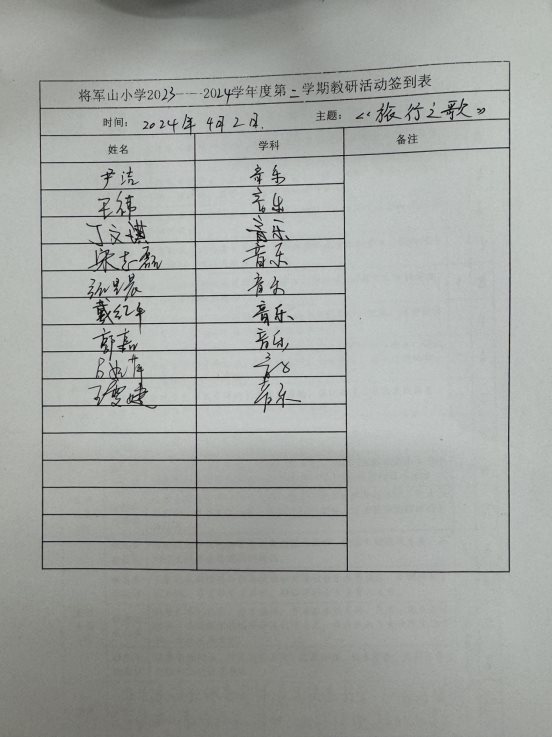 将军山小学2023——2024学年度第二学期教研活动签到表
时间： 2024年4月2日. 主题：《旅行之歌》
姓名 学科 备注
尹洁 音乐
王祎 音乐
丁文琪 音乐
梁志磊 音乐
音乐
戴红年 音乐
郭嘉 音乐
音乐
王雯婕 音乐